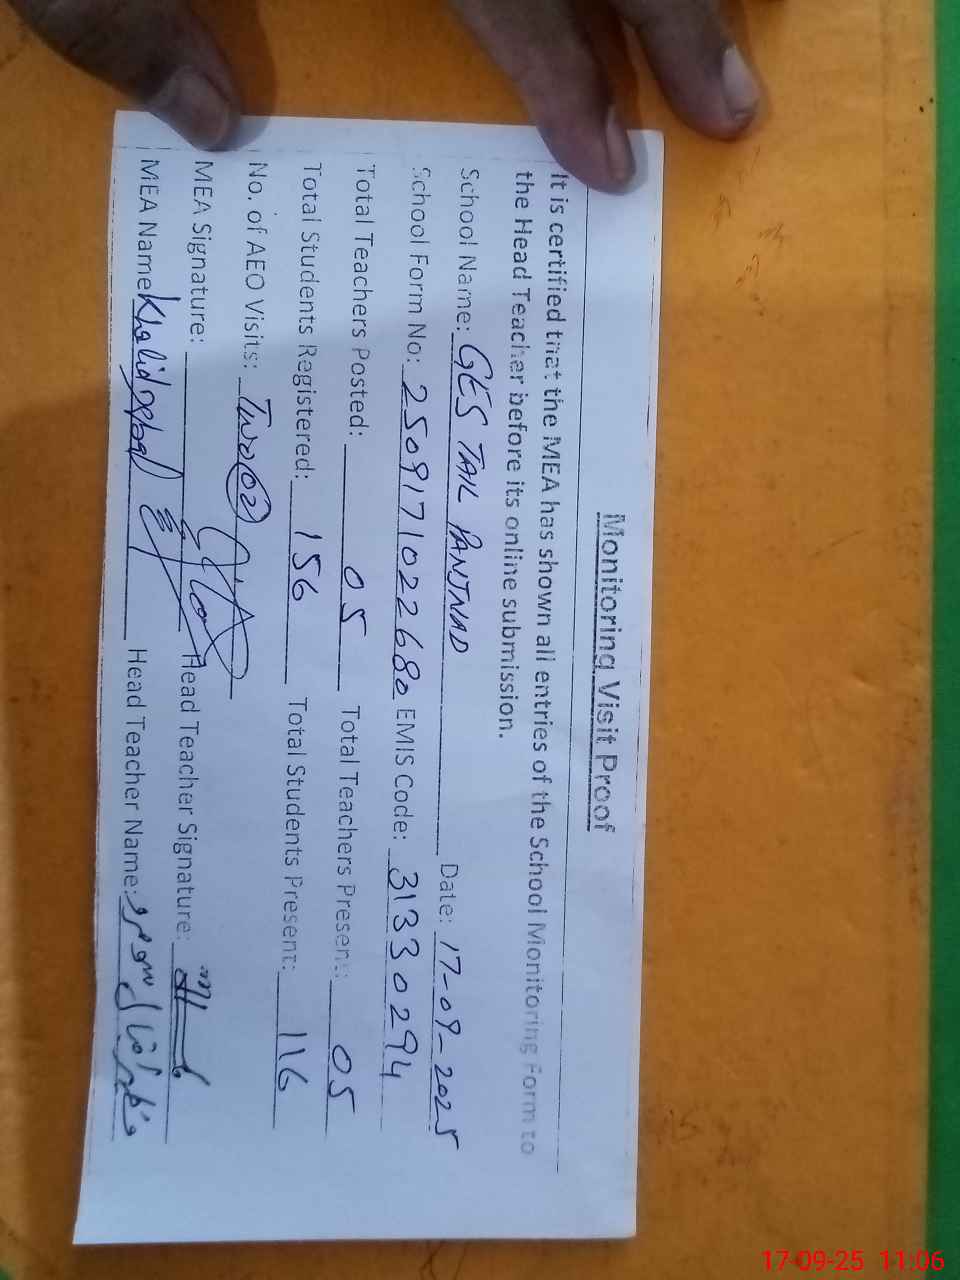 Monitoring Visit Proof
It is certified that the MEA has shown all entries of the School Monitoring Form to
the Head Teacher before its online submission.
School Name: GES TAIL PANJNAD Date: 17-09-2025
School Form No: 2509171022680 EMIS Code: 31330294
Total Teachers Posted: 05 Total Teachers Present: 05
Total Students Registered: 156 Total Students Present: 116
No. of AEO Visits: Two (02)
MEA Signature: Head Teacher Signature:
MEA Name Khalid Iqbal Head Teacher Name:
17-09-25 11:06